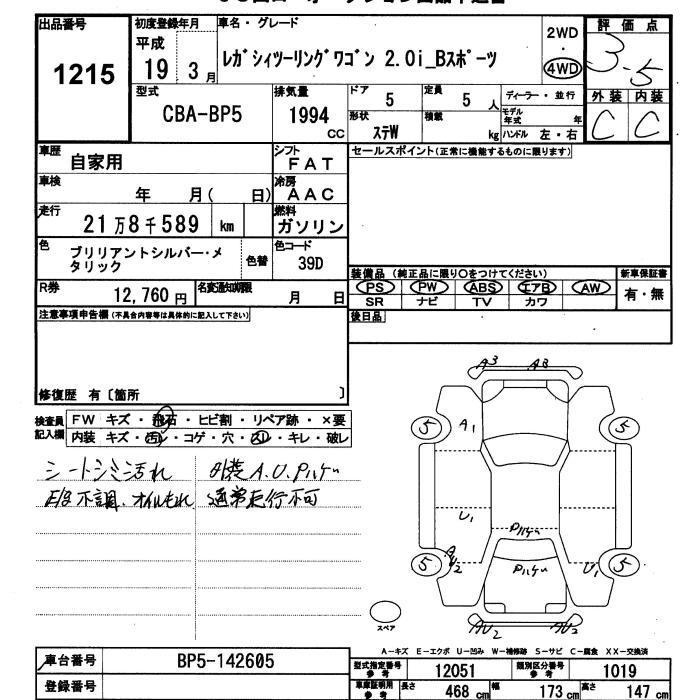 出品番号
1215
初度登録年月
平成
19 3月
車名・グレード
レガシィツーリングワゴン 2.0i_Bスポーツ
2WD
・
4WD
評価点
3.5
外装 内装
C C
型式
CBA-BP5
排気量
1994
CC
ドア
5
定員
5 人
ディーラー・並行
形状
ステW
積載
kg
モデル年式 年
ハンドル 左・右
車歴
自家用
シフト
FAT
セールスポイント(正常に機能するものに限ります)
車検
年 月( 日)
冷房
AAC
走行
21万8千589 km
燃料
ガソリン
色
ブリリアントシルバー・メ
タリック
色替
色コード
39D
装備品 (純正品に限り○をつけてください)
新車保証書
PS PW ABS エアB AW
有・無
SR ナビ TV カワ
R券
12,760 円
名変通知期限
月 日
後日品
注意事項申告欄 (不具合内容等は具体的に記入して下さい)
修復歴 有〔箇所 〕
検査員
記入欄
FW キズ・飛石・ヒビ割・リペア跡・×要
内装 キズ・汚レ・コゲ・穴・スレ・キレ・破レ
シートシミ汚れ
外装A.U.Pハゲ
E/g不調.オイルもれ
通常走行不可
A3 A3
5 A1 5
U1 Pハゲ
5 U2 Pハゲ U1 5
AU2 AU2
スペア
A-キズ E-エクボ U-凹み W-補修跡 S-サビ C-腐食 XX-交換済
車台番号
BP5-142605
登録番号
型式指定番号
参考
12051
類別区分番号
参考
1019
車庫証明用
参考
長さ
468 cm
幅
173 cm
高さ
147 cm